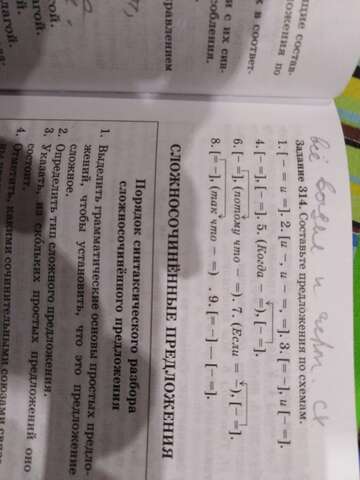 щие состав-
ложения по
к в соответ-
и с их син-
особления.
равлением
Задание 314. Составьте предложения по схемам.
1. [− = и =]. 2. [и −, и − =, =]. 3. [= −], и [− =].
4. [− =], [− =]. 5. (Когда − =), [− =].
6. [− =], (потому что − =). 7. (Если = −), [− =].
8. [= −], (так что − =) . 9. [= −] — [− =].
СЛОЖНОСОЧИНЁННЫЕ ПРЕДЛОЖЕНИЯ
Порядок синтаксического разбора
сложносочинённого предложения
1. Выделить грамматические основы простых предло-
жений, чтобы установить, что это предложение
сложное.
2. Определить тип сложного предложения.
3. Указать, из скольких простых предложений оно
состоит.
4. Отметить, какими сочинительными союзами связа-